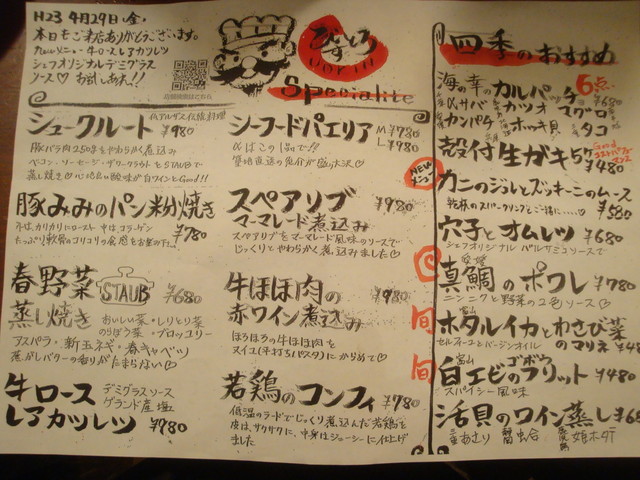 H23 4月29日(金)
本日もご来店ありがとうございます。
Newメニュー 牛ロースレアカツレツ
シェフオリジナルデミグラス
ソース♡ お試しあれ!!
びすとろ
UOKIN
Specialite
シュークルート ¥980
仏アルザス伝統料理
豚バラ肉250gをやわらかく煮込み
ベーコン・ソーセージ・ザワークラウトとSTAUBで
蒸し焼き♡心地良い酸味が白ワインとGood!!
豚みみのパン粉焼き
¥780
外はカリカリにロースト 中はコラーゲン
たっぷり軟骨のコリコリの食感をお楽み下さい
春野菜
STAUB
¥680
蒸し焼き
おいしい菜・しりとり菜
のらぼう菜・ブロッコリー
アスパラ・新玉ネギ・春キャベツ
焦がしバターの香りがたまらない♡
牛ロース
レアカツレツ
デミグラスソース
ゲランド産塩
¥980
シーフードパエリア M¥780
L¥980
築地直送の魚介が
スペアリブ
マーマレード煮込み
¥980
スペアリブをマーマレード風味のソースで
じっくりとやわらかく煮込みました♡
牛ほほ肉の
赤ワイン煮込み
¥980
ほろほろの牛ほほ肉を
パスタ)にからめて♡
若鶏のコンフィ
¥780
低温のラードでじっくり煮込んだ若鶏を
皮は、サクサクに、中身はジューシーに仕上げ
ました
NEW
メニュー
旬
旬
四季のおすすめ
海の幸のカルパッチョ
6点
¥680
サバ カツオ マグロ
カンパチ ホッキ貝 タコ
殻付生ガキ
¥480
カニのジュレとズッキーニのムース
乾杯のスパークリングとご一緒に……♡
¥580
穴子とオムレツ ¥680
シェフオリジナル バルサミコソースで
愛媛
真鯛のポワレ ¥780
ニンニクと野菜の2色ソース♡
富山
ホタルイカとわさび菜
のマリネ ¥48
富山
白エビのフリット ¥480
ゴボウ
スパイシー風味
活貝のワイン蒸し ¥68
あさり